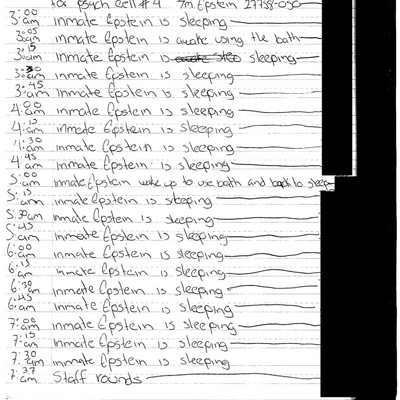 for psych cell #4 Epstein
3:00 am inmate Epstein is sleeping
3:05 am inmate Epstein is awake using the bath
3:15 am inmate Epstein is sleeping
3:30 am inmate Epstein is sleeping
3:45 am inmate Epstein is sleeping
4:00 am inmate Epstein is sleeping
4:15 am inmate Epstein is sleeping
4:30 am inmate Epstein is sleeping
4:45 am inmate Epstein is sleeping
5:00 am inmate Epstein woke up to use bath and back to sleep
5:15 am inmate Epstein is sleeping
5:30am inmate Epstein is sleeping
5:45 am inmate Epstein is sleeping
6:00 am inmate Epstein is sleeping
6:15 am inmate Epstein is sleeping
6:30 am inmate Epstein is sleeping
6:45 am inmate Epstein is sleeping
7:00 am inmate Epstein is sleeping
7:15 am inmate Epstein is sleeping
7:30 am inmate Epstein is sleeping
7:37 am Staff rounds